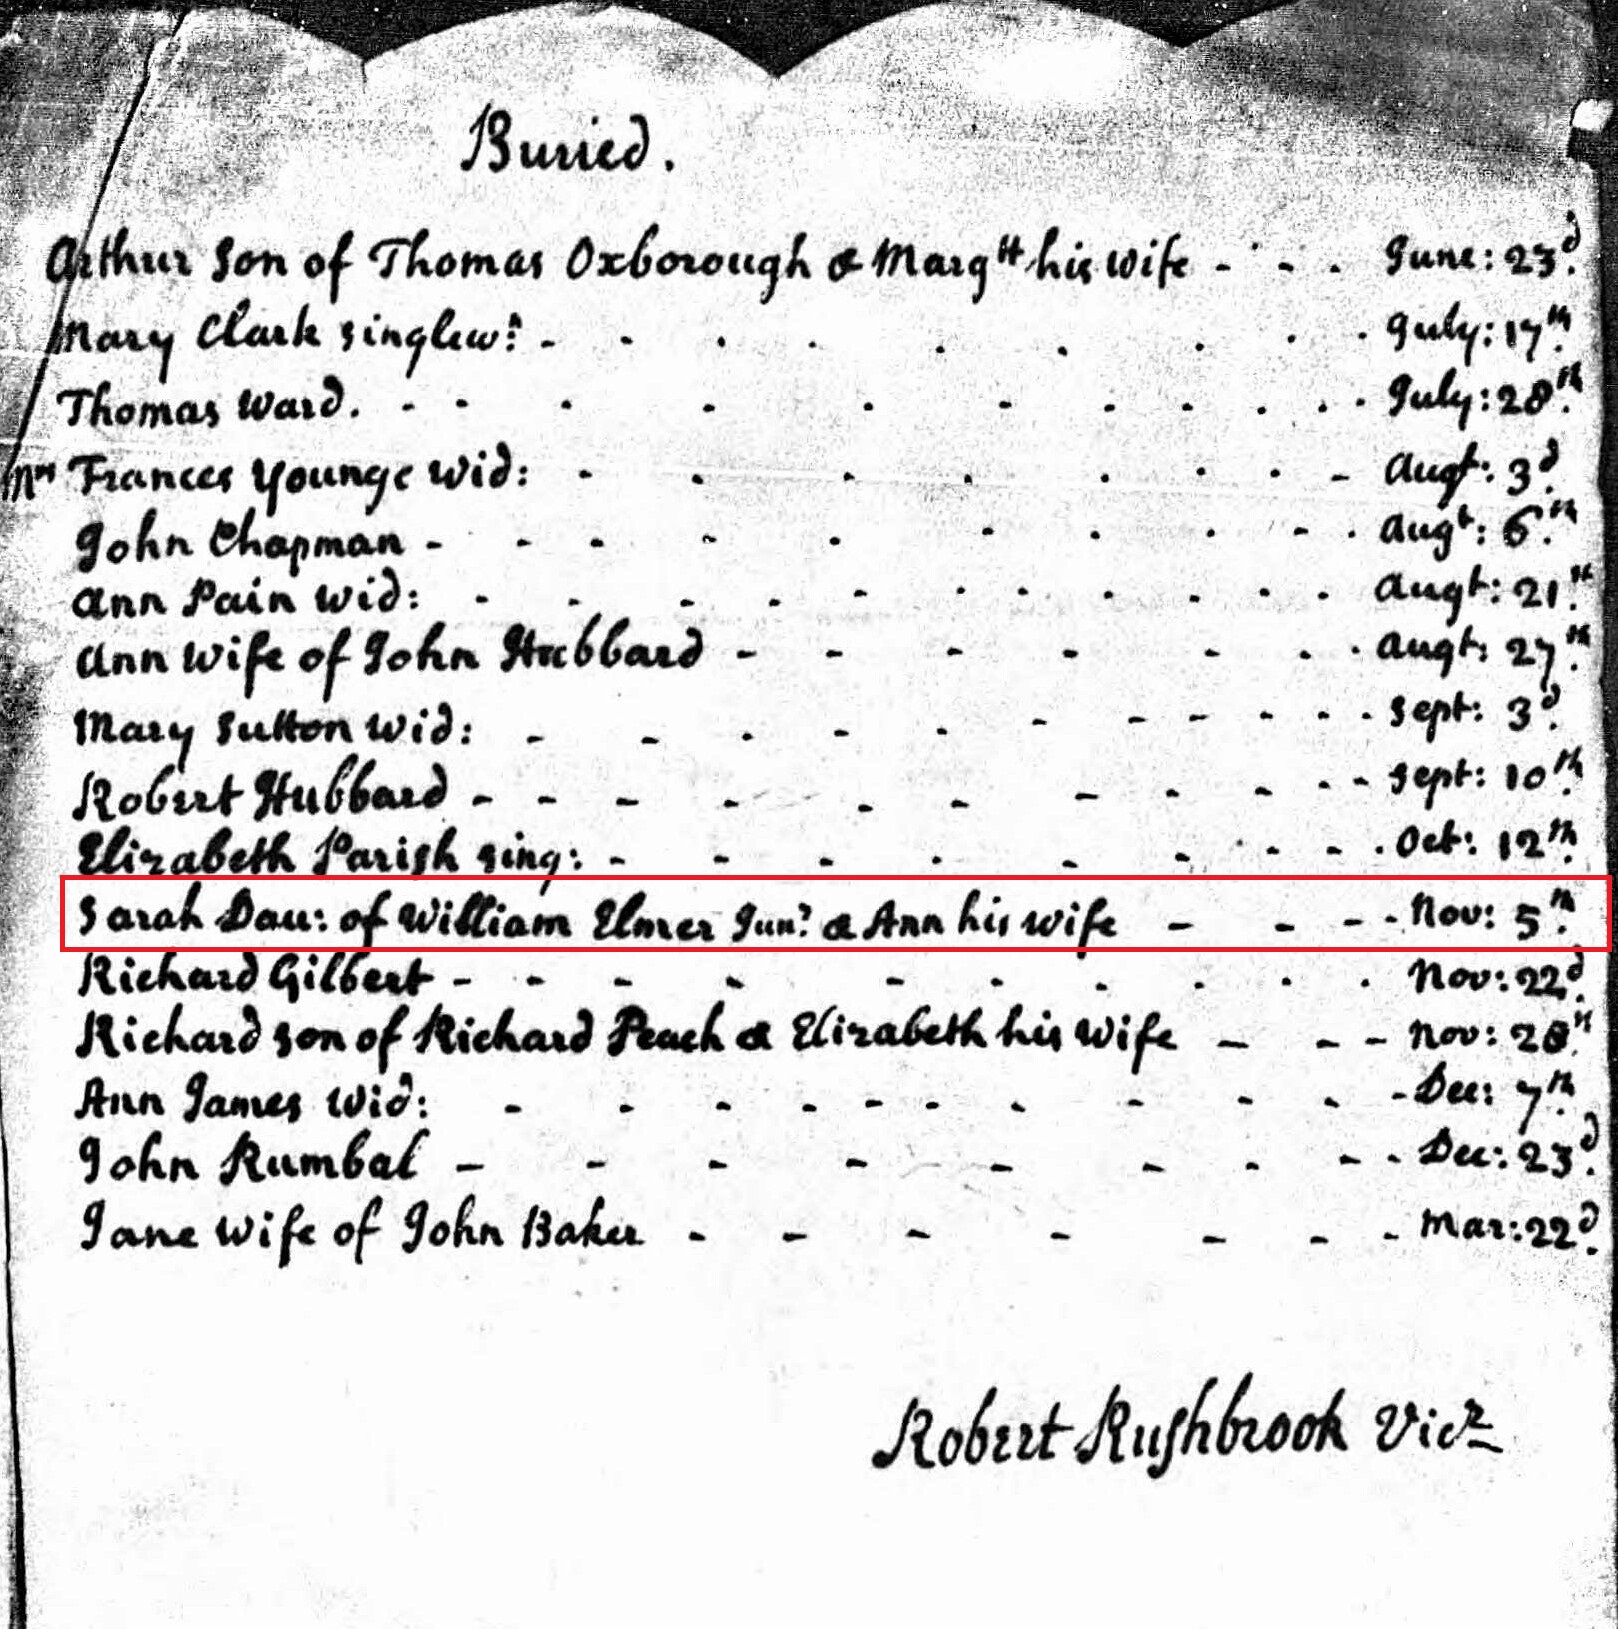 Buried.
Arthur Son of Thomas Oxborough & Margtt his wife - - - . June: 23d.
Mary Clark Singlew: - . . . . . . . . July: 17th.
Thomas Ward. - - . . . . . . . . . . July: 28th.
Mrs Frances Younge Wid: - . . . . . . - Augt: 3d.
John Chapman - - - - . - . . - . Augt: 6th.
Ann Pain Wid: - - - - - . . . . . . Augt: 21st.
Ann Wife of John Hubbard - - - - - . . Augt: 27th.
Mary Sutton Wid: - - - - - - - - - - . Sept: 3d.
Robert Hubbard - - - - - - - - - - - Sept: 10th.
Elizabeth Parish Sing: - - - . - - - - . Oct: 12th.
Sarah Dau: of William Elmer Junr & Ann his wife - - - - Nov: 5th.
Richard Gilbert - - - - - - . . . . Nov: 22d.
Richard Son of Richard Peach & Elizabeth his Wife - - - Nov: 28th.
Ann James Wid: - - - - - - - - - - - Dec: 7th.
John Rumbal - - - - - - - - - Dec: 23d.
Jane Wife of John Baker - - - - - - - Mar: 22d.
Robert Rushbrook Vicr